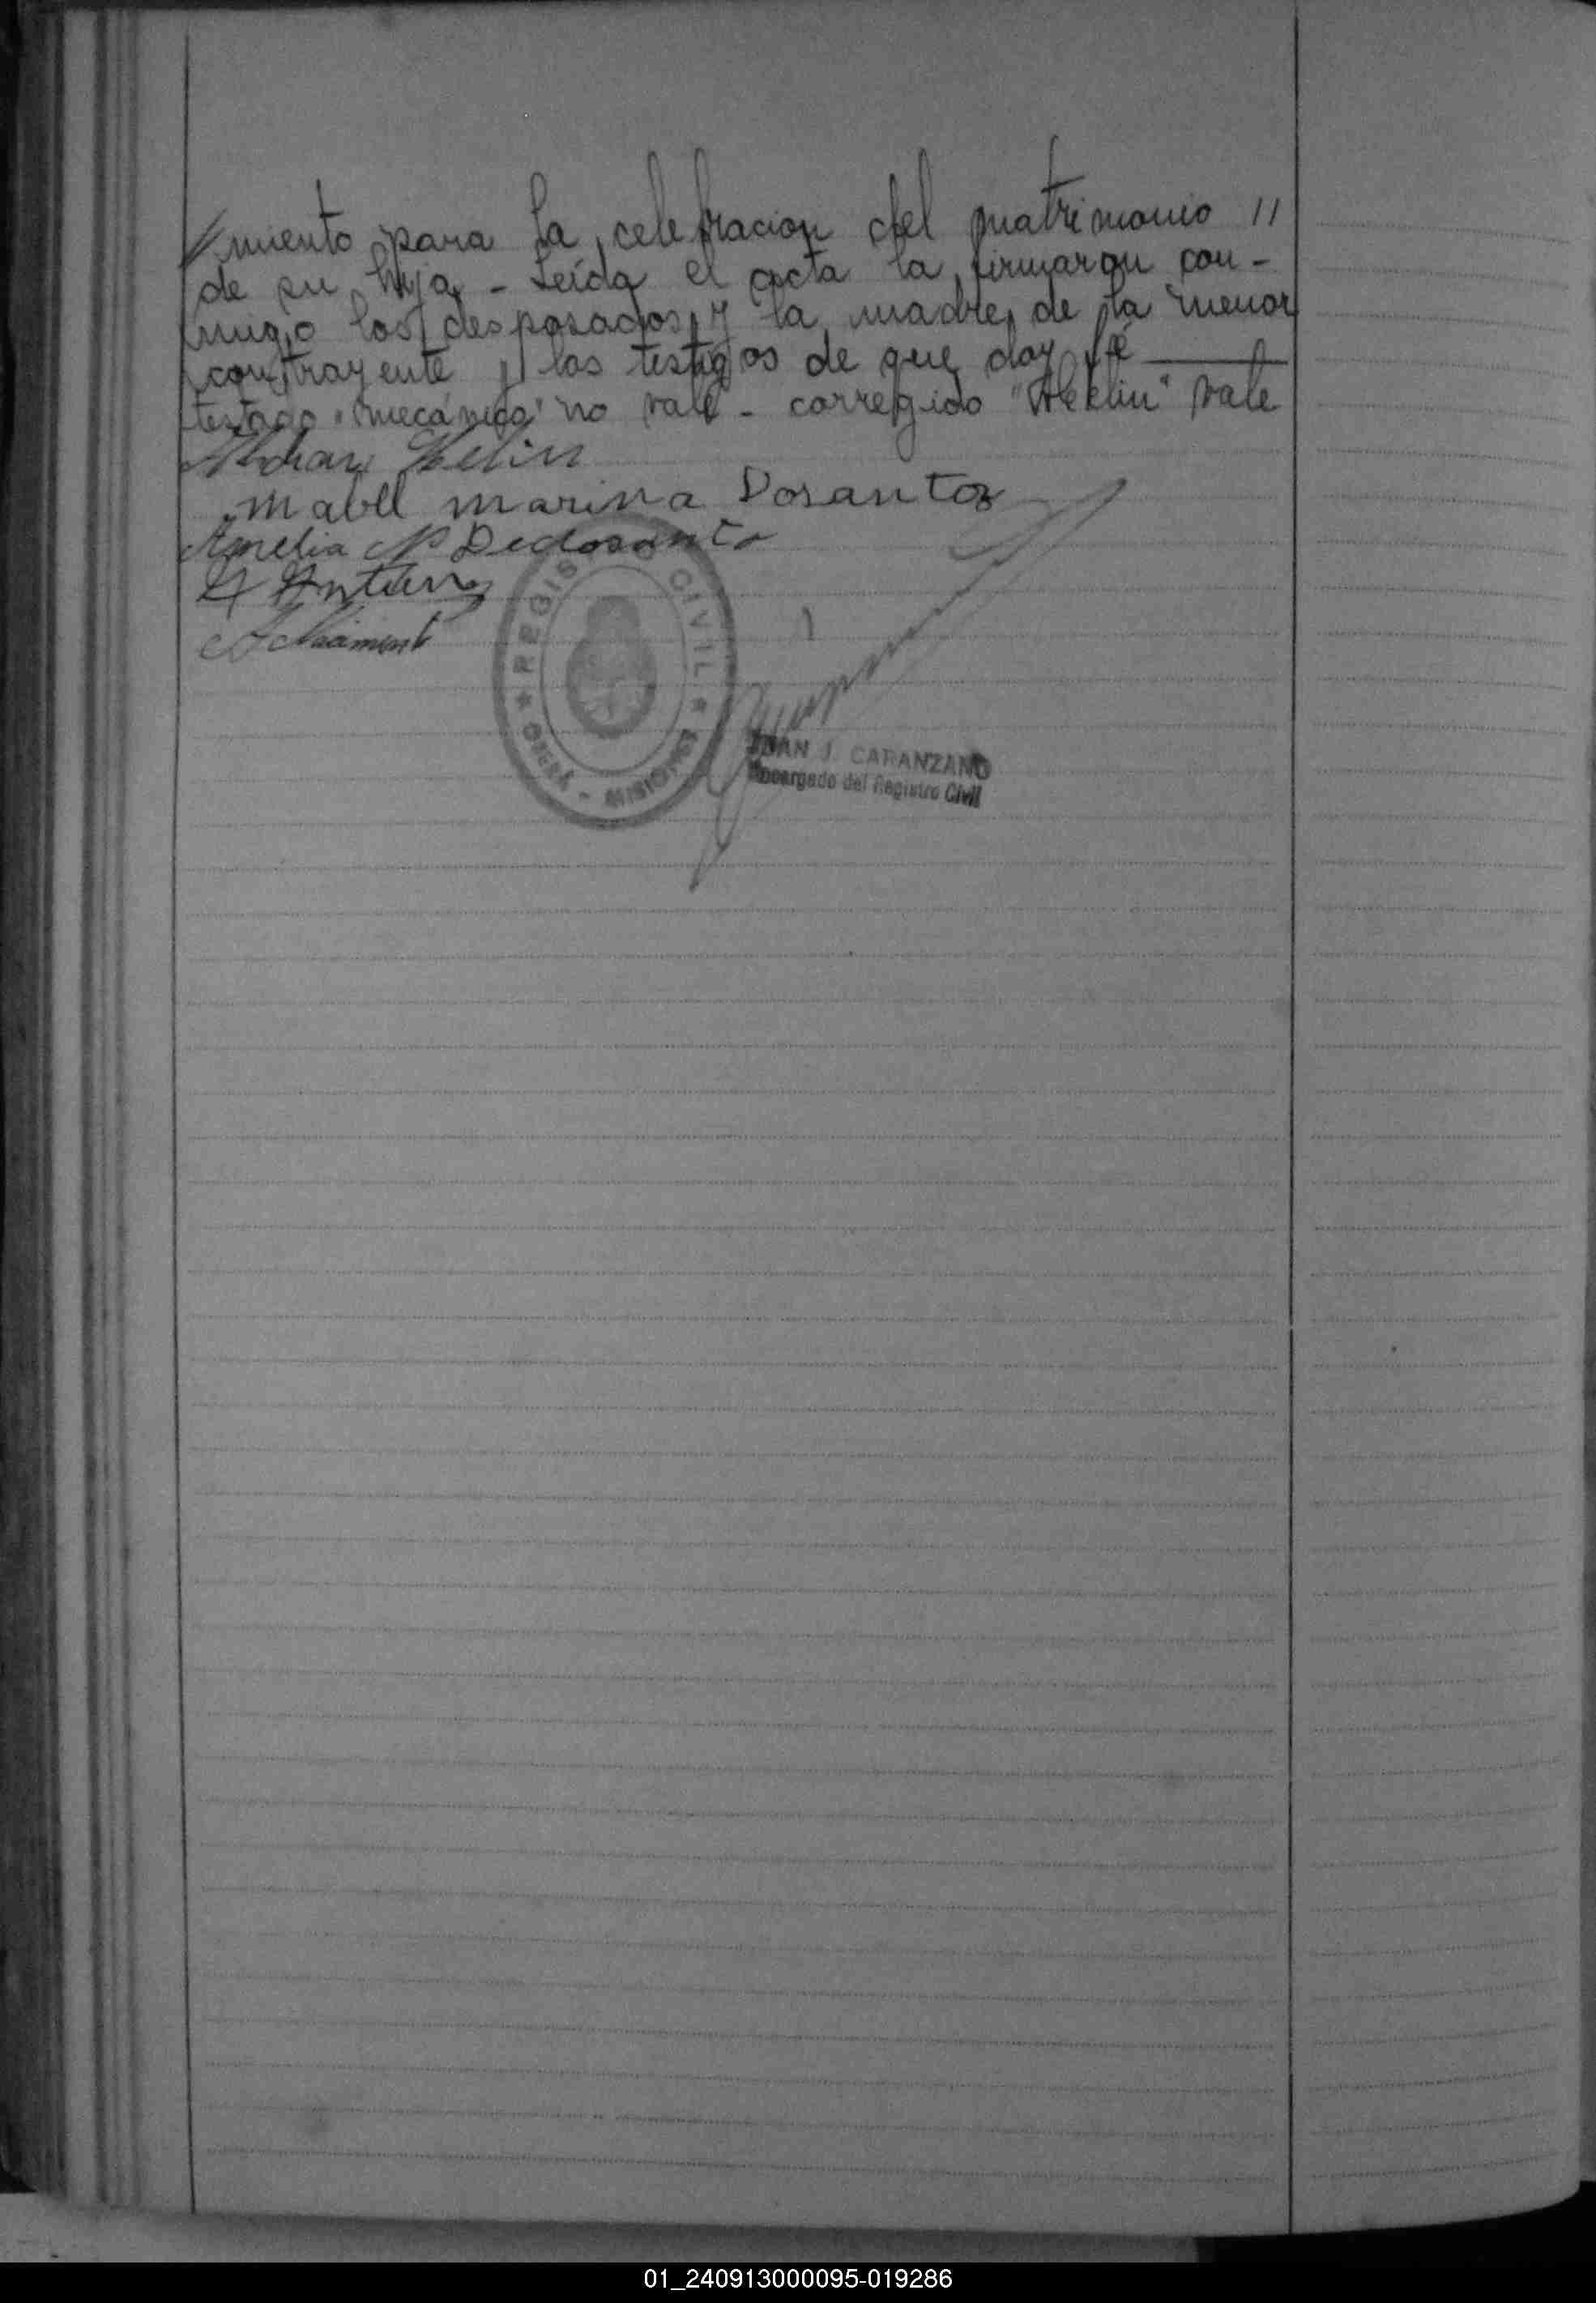 //miento para la celebracion del matrimonio //
de su hija - Leída el acta la firmaron con-
migo los desposados, y la madre, de la menor
contrayente y los testigos de que doy fé
testado "mecánico" no vale - corregido vale
Helin
Mabel marina Dosantos
Amelia Dedosanto
REGISTRO CIVIL
OBERÁ - MISIONES
JUAN J. CARANZANO
Encargado del Registro Civil
01_240913000095-019286